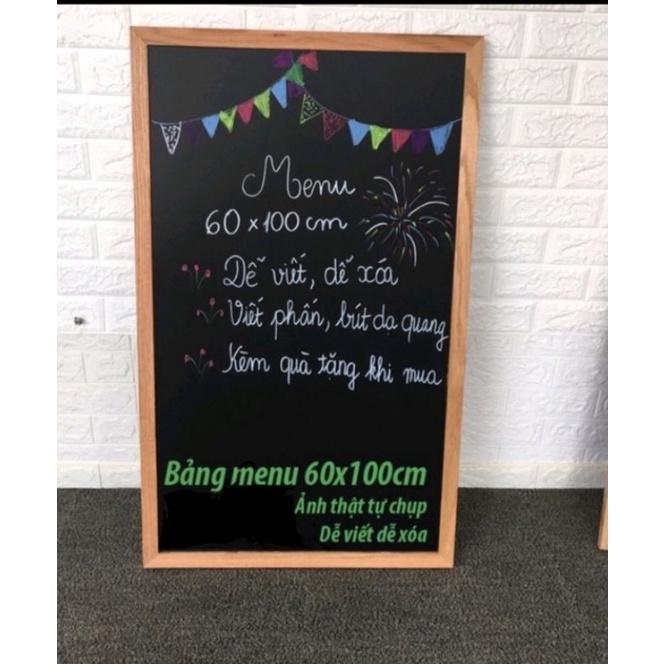 Menu
60 x 100 cm
Dễ viết, dễ xóa
Viết phấn, bút dạ quang
Kèm quà tặng khi mua
Bảng menu 60x100cm
Ảnh thật tự chụp
Dễ viết dễ xóa